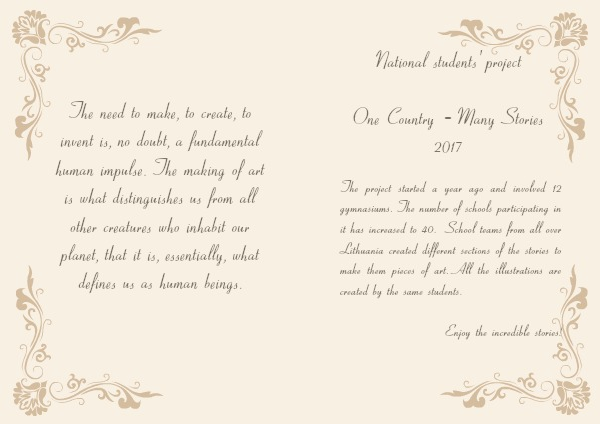 The need to make, to create, to
invent is, no doubt, a fundamental
human impulse. The making of art
is what distinguishes us from all
other creatures who inhabit our
planet, that it is, essentially, what
defines us as human beings.
National students' project
One Country - Many Stories
2017
The project started a year ago and involved 12
gymnasiums. The number of schools participating in
it has increased to 40. School teams from all over
Lithuania created different sections of the stories to
make them pieces of art. All the illustrations are
created by the same students.
Enjoy the incredible stories!